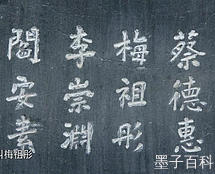 蔡德惠
梅祖彤
李崇淵
閻安素
叫梅祖彤
墨子百科